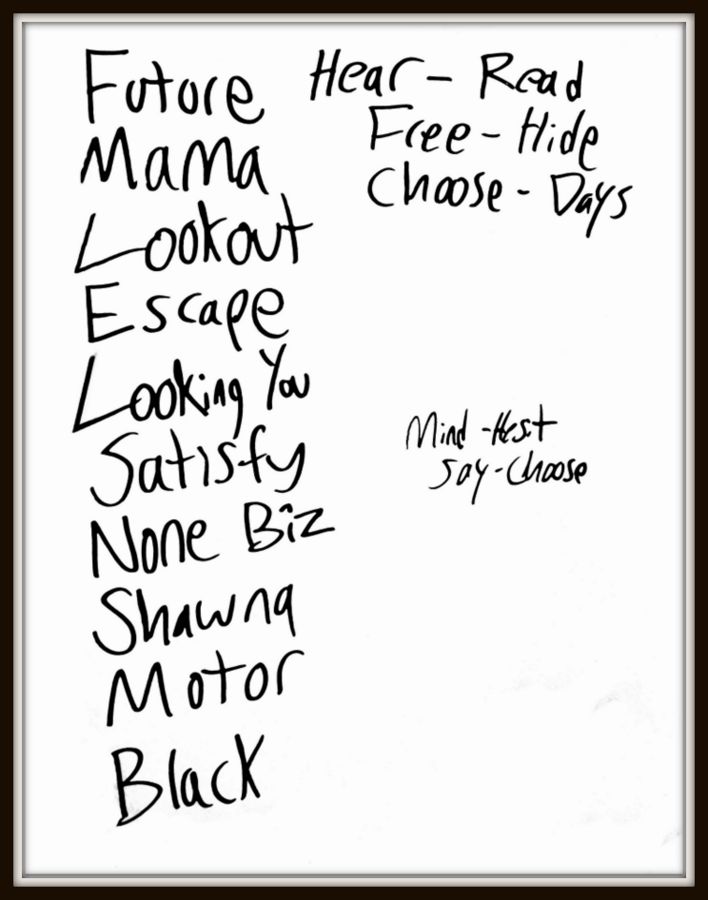 Future
Mama
Lookout
Escape
Looking You
Satisfy
None Biz
Shawna
Motor
Black
Hear - Read
Free - Hide
Choose - Days
Mind - Hesit
Say - Choose